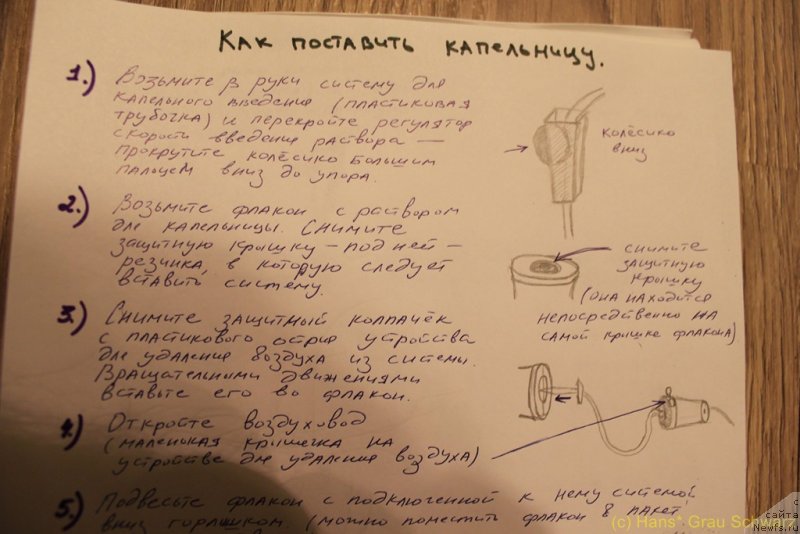 Как поставить капельницу.
1.) Возьмите в руки систему для
капельного введения (пластиковая
трубочка) и перекройте регулятор
скорости введения раствора —
прокрутите колёсико большим
пальцем вниз до упора.
колёсико
вниз
2.) Возьмите флакон с раствором
для капельницы. Снимите
защитную крышку – под ней –
резинка, в которую следует
вставить систему.
снимите
защитную
крышку
(она находится
непосредственно на
самой крышке флакона)
3.) Снимите защитный колпачёк
с пластикового острия устройства
для удаления воздуха из системы.
Вращательными движениями
вставьте его во флакон.
4.) Откройте воздуховод
(маленькая крышечка на
устройстве для удаления воздуха)
5.) Подвесьте флакон с подключенной к нему системой
вниз горлышком. (можно поместить флакон в пакет
(c) Hans* Grau Schwarz
с сайта
Newfs.ru